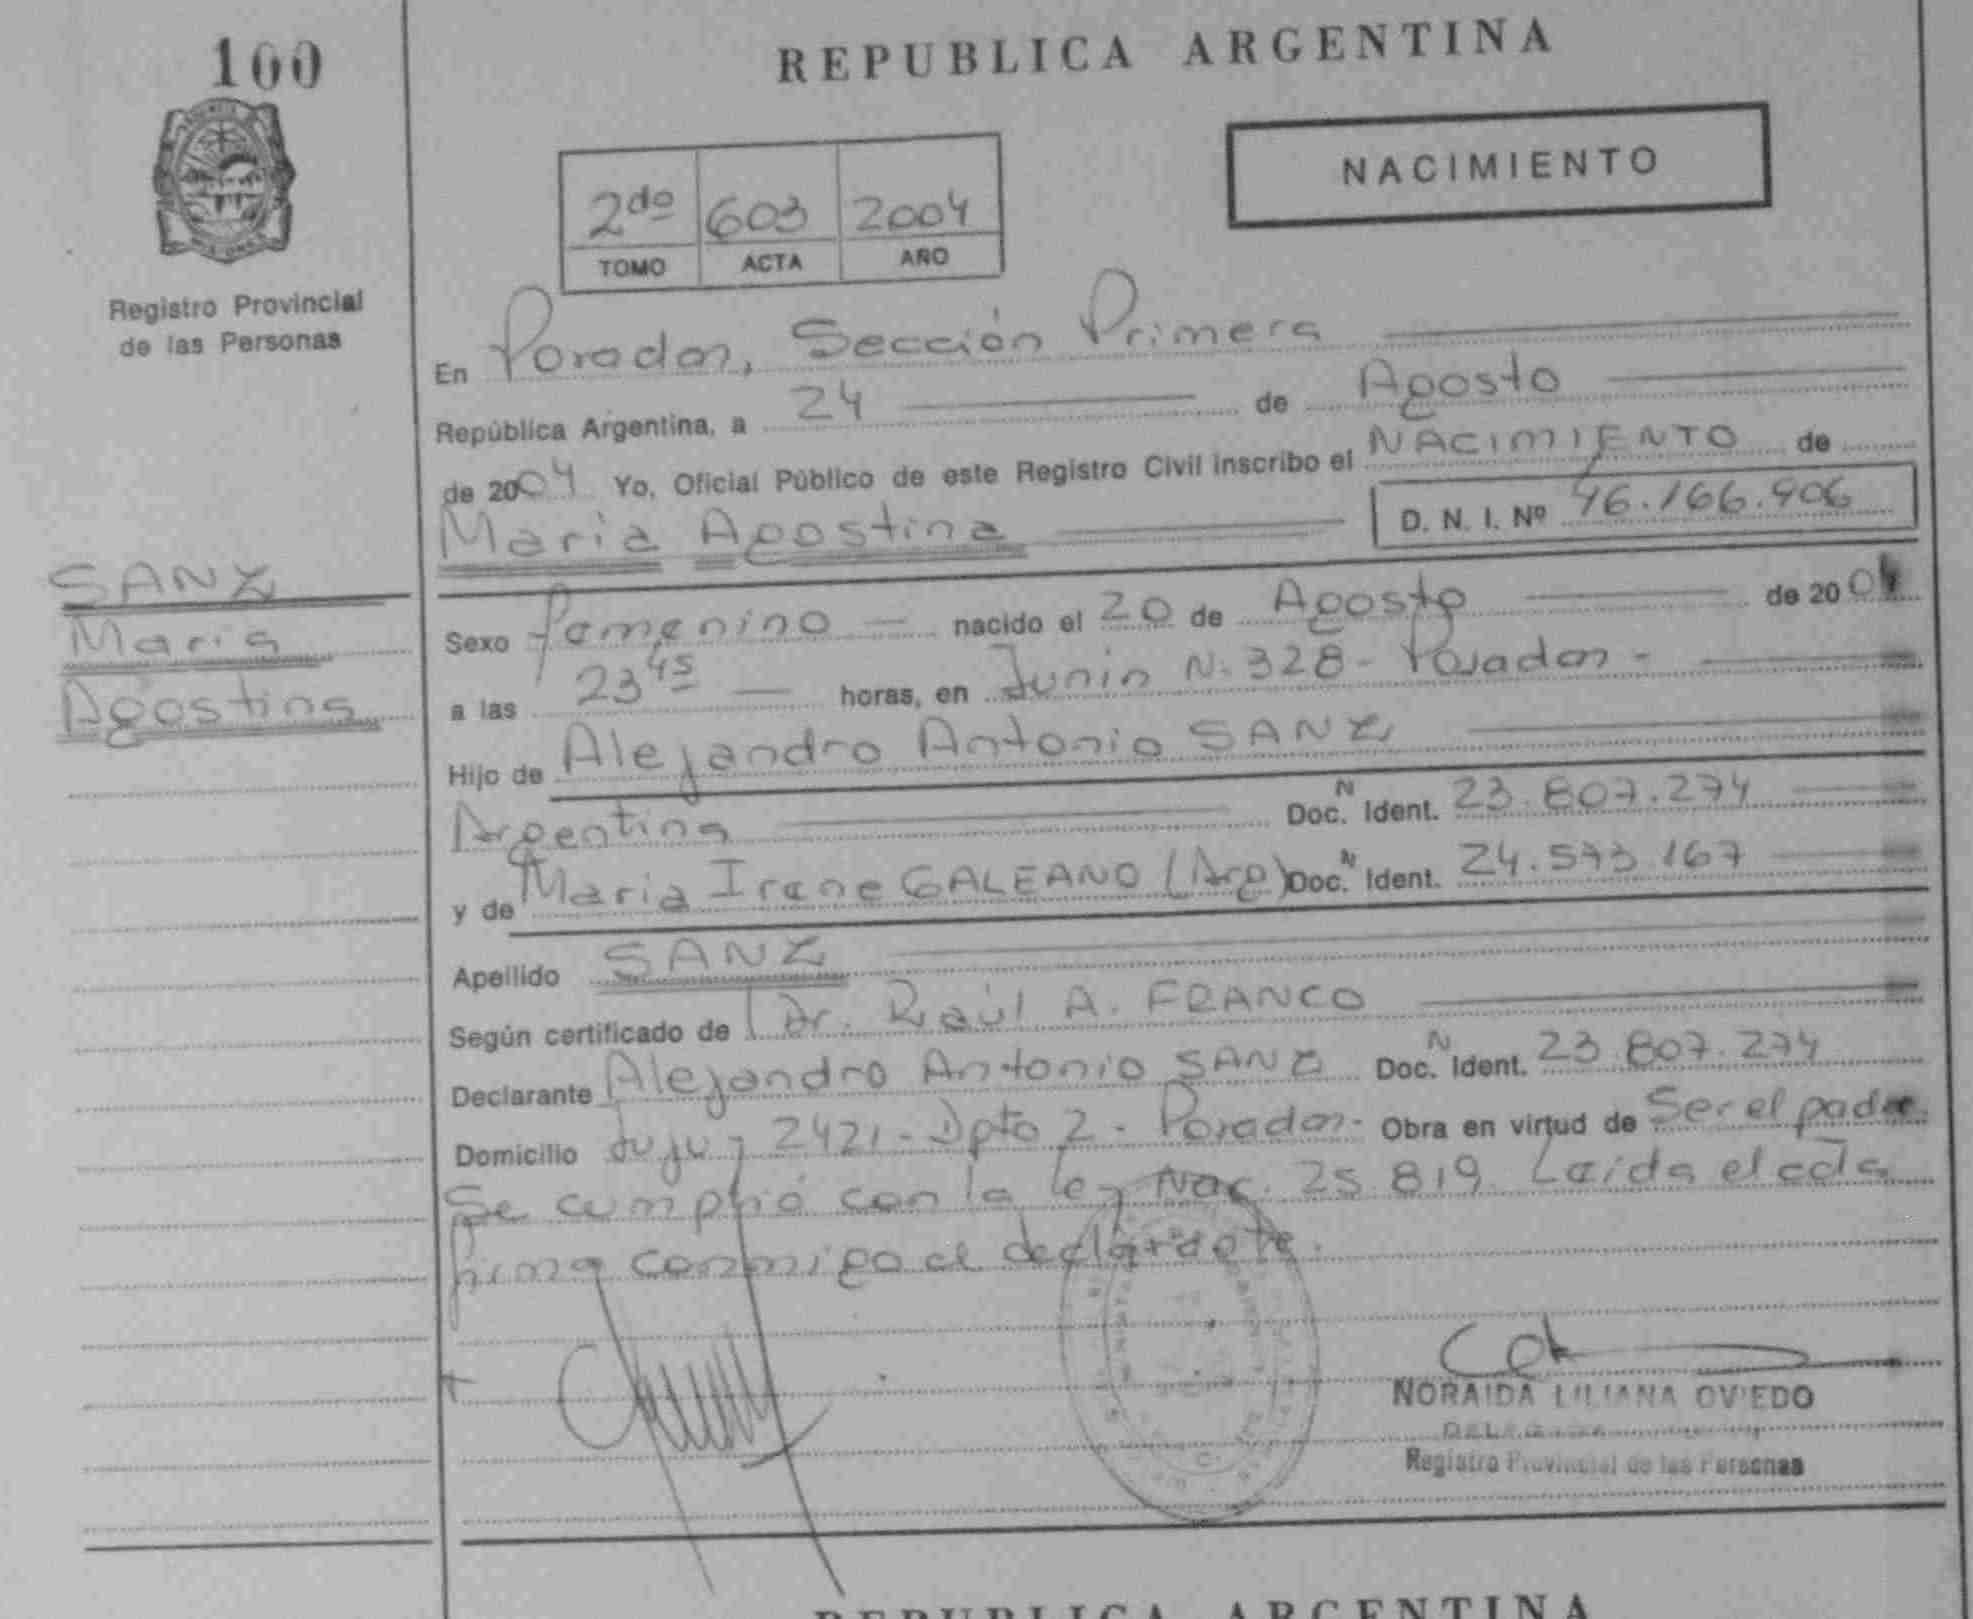 100
REPUBLICA ARGENTINA
NACIMIENTO
2do 603 2004
TOMO ACTA AÑO
Registro Provincial
de las Personas
En Posadas, Sección Primera
República Argentina, a 24 de Agosto
de 2004 Yo, Oficial Público de este Registro Civil inscribo el NACIMIENTO de
Maria Agostina D. N. I. Nº 46.166.906
SANZ
Maria
Agostina
Sexo femenino nacido el 20 de Agosto de 2004
a las 23 45 horas, en Junin N. 328 - Posadas -
Hijo de Alejandro Antonio SANZ
Argentina Doc. N Ident. 23.807.274
y de Maria Irene GALEANO (Arg) Doc. N Ident. 24.573.167
Apellido SANZ
Según certificado de Dr. Raúl A. FRANCO
Declarante Alejandro Antonio SANZ Doc. N Ident. 23.807.274
Domicilio Jujuy 2421 - Dpto 2 - Posadas - Obra en virtud de Ser el padre.
Se cumplió con la ley Nac. 25.819. Leída el acta
firma conmigo el declarante.
NORAIDA LILIANA OVIEDO
Registro Provincial de las Personas
REPUBLICA ARGENTINA